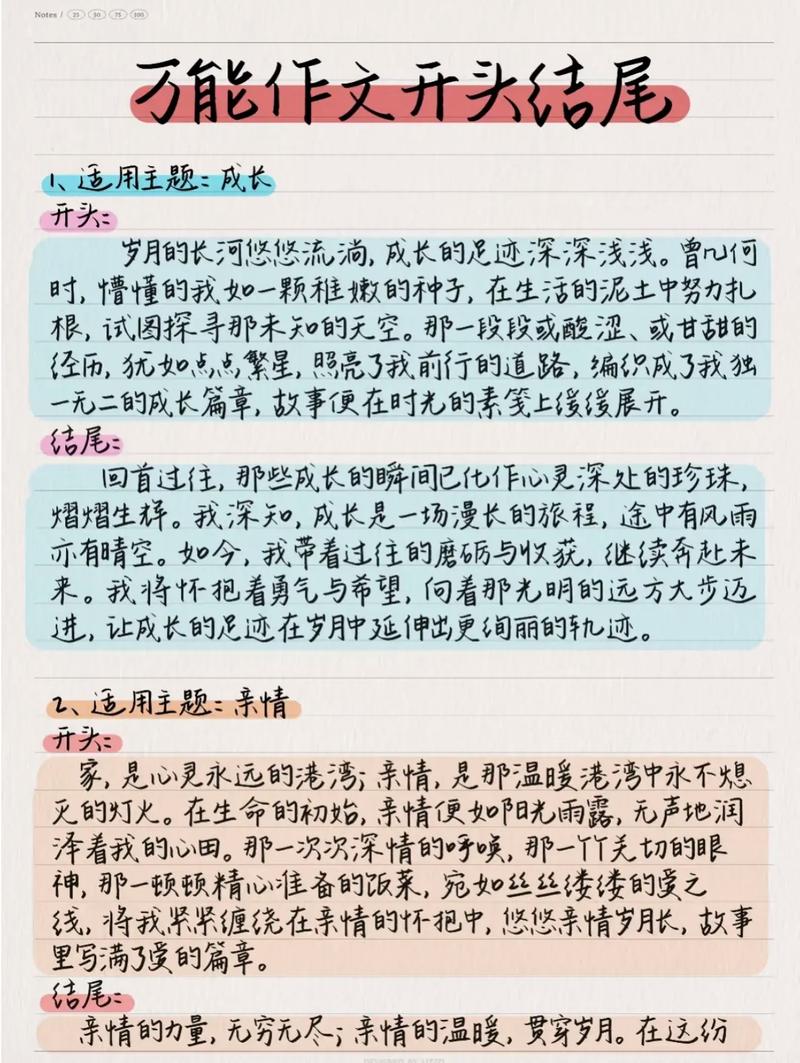 Notes / 25 50 75 100
万能作文开头结尾
1、适用主题：成长
开头：
岁月的长河悠悠流淌，成长的足迹深深浅浅。曾几何
时，懵懂的我如一颗稚嫩的种子，在生活的泥土中努力扎
根，试图探寻那未知的天空。那一段段或酸涩、或甘甜的
经历，犹如点点繁星，照亮了我前行的道路，编织成了我独
一无二的成长篇章，故事便在时光的素笺上缓缓展开。
结尾：
回首过往，那些成长的瞬间已化作心灵深处的珍珠，
熠熠生辉。我深知，成长是一场漫长的旅程，途中有风雨
亦有晴空。如今，我带着过往的磨砺与收获，继续奔赴未
来。我将怀抱着勇气与希望，向着那光明的远方大步迈
进，让成长的足迹在岁月中延伸出更绚丽的轨迹。
2、适用主题：亲情
开头：
家，是心灵永远的港湾；亲情，是那温暖港湾中永不熄
灭的灯火。在生命的初始，亲情便如阳光雨露，无声地润
泽着我的心田。那一次次深情的呼唤，那一个个关切的眼
神，那一顿顿精心准备的饭菜，宛如丝丝缕缕的爱之
线，将我紧紧缠绕在亲情的怀抱中，悠悠亲情岁月长，故事
里写满了爱的篇章。
结尾：
亲情的力量，无穷无尽；亲情的温暖，贯穿岁月。在这纷